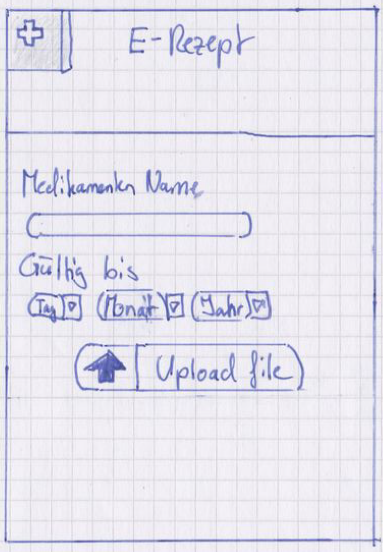 E-Rezept
Medikamenten Name
Gültig bis
Tag Monat Jahr
Upload file